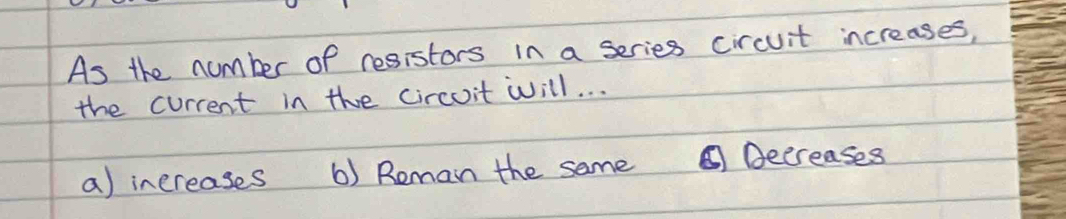 As the number of resistors in a series circuit increases,
the current in the circuit will...
a) increases b) Reman the same c) Decreases